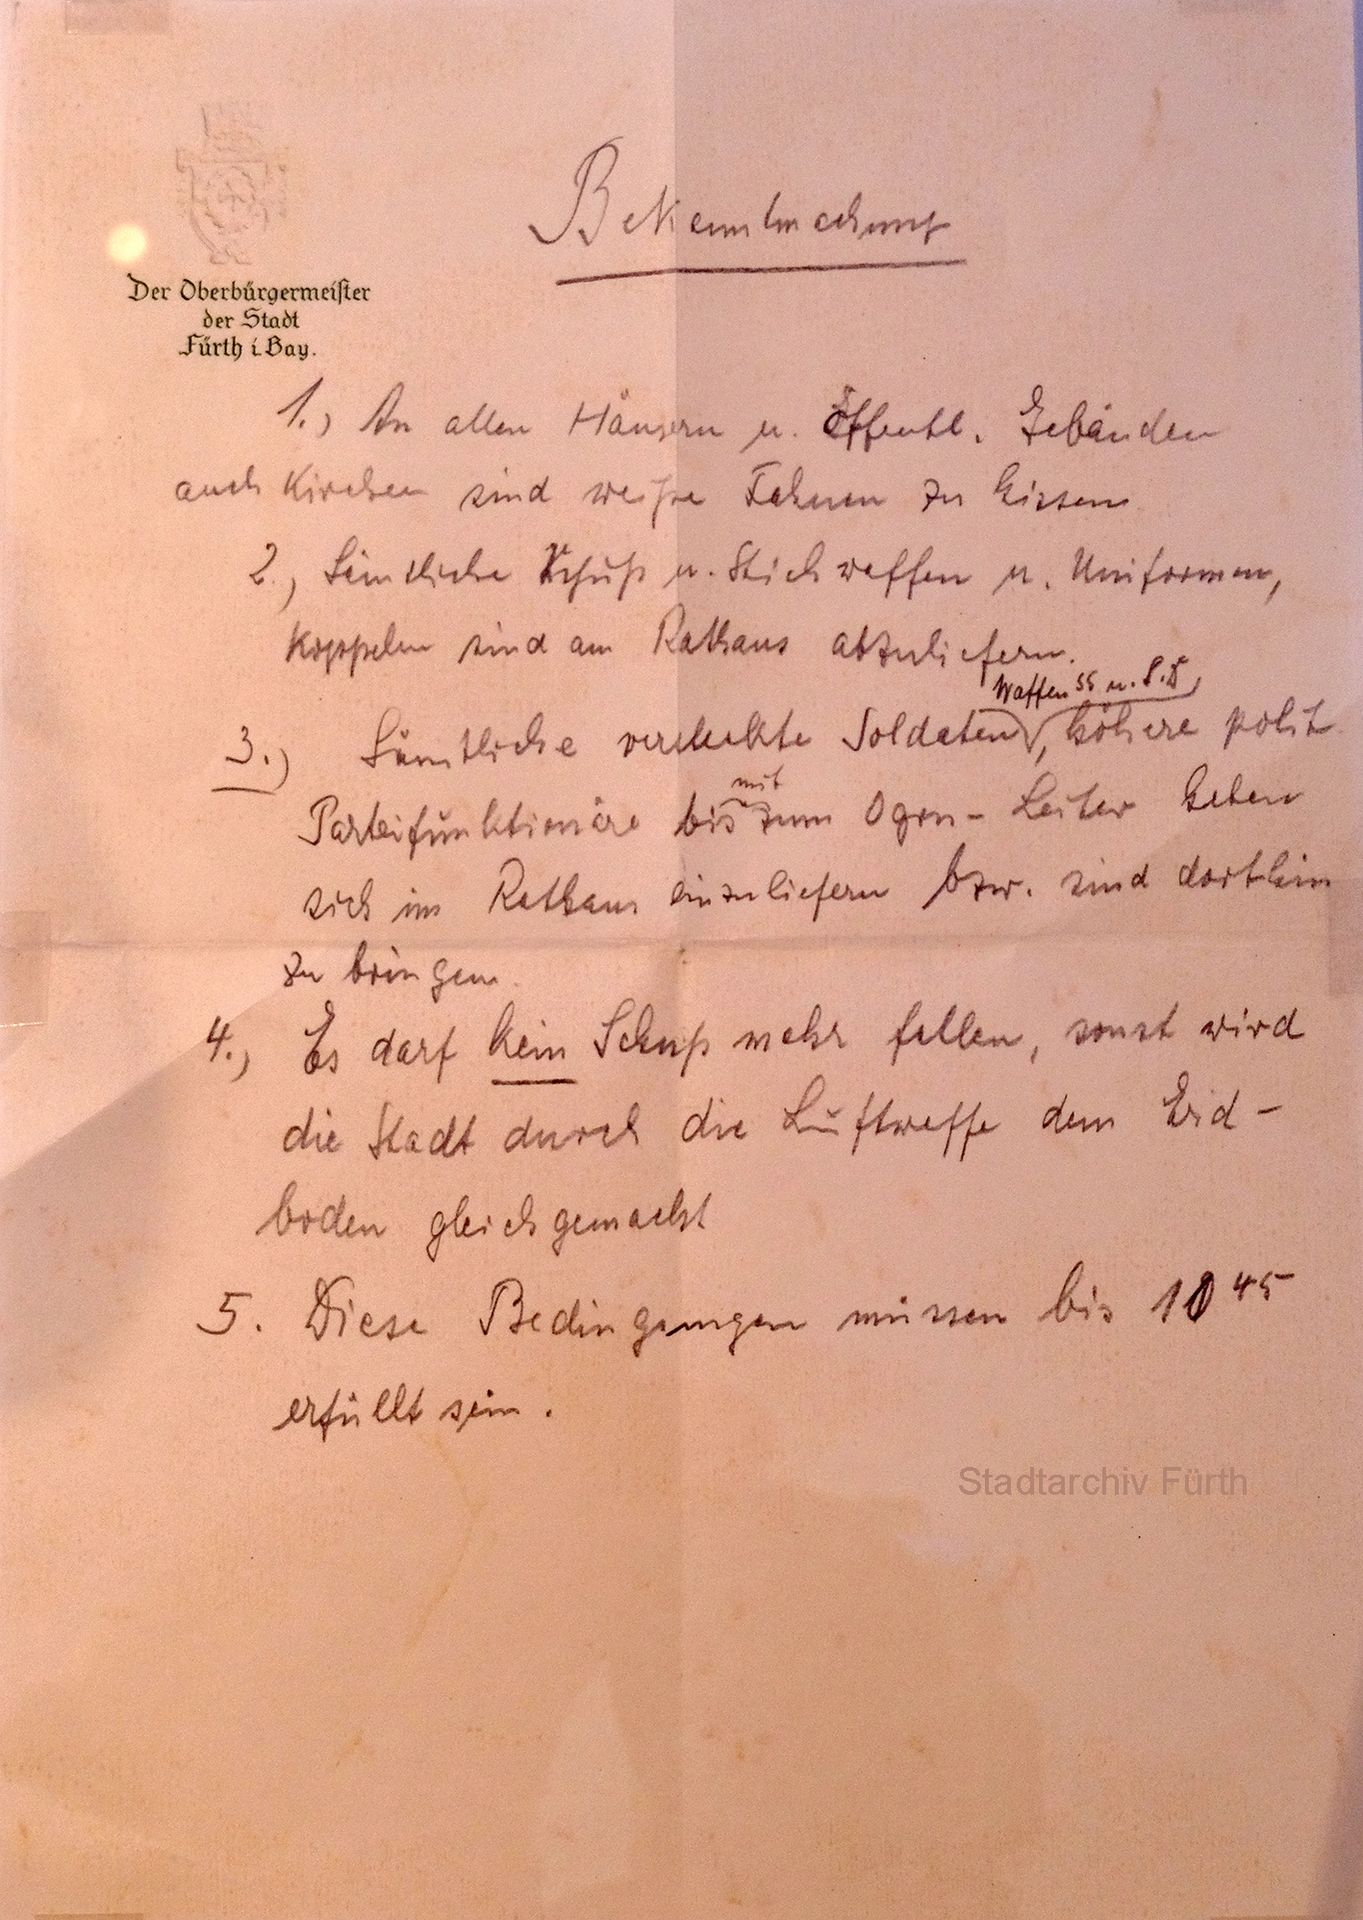 Bekanntmachung
Der Oberbürgermeister
der Stadt
Fürth i. Bay.
1.) An allen Häusern u. öffentl. Gebäuden
auch Kirchen sind weiße Fahnen zu hissen
2.) Sämtliche Schuß u. Stichwaffen u. Uniformen,
Koppeln sind am Rathaus abzuliefern.
Waffen SS u. S.D,
3.) Sämtliche versteckte Soldaten, höhere polit.
mit
Parteifunktionäre bis zum Ogru-Leiter haben
sich im Rathaus einzuliefern bzw. sind dorthin
zu bringen.
4.) Es darf kein Schuß mehr fallen, sonst wird
die Stadt durch die Luftwaffe dem Erd-
boden gleichgemacht
5. Diese Bedingungen müssen bis 10 45
erfüllt sein.
Stadtarchiv Fürth